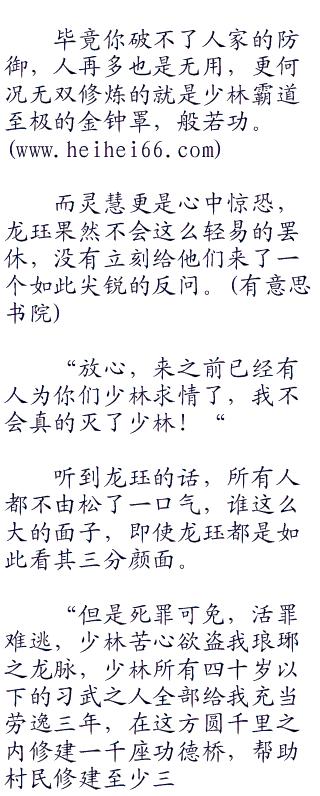 毕竟你破不了人家的防
御，人再多也是无用，更何
况无双修炼的就是少林霸道
至极的金钟罩，般若功。
(www.heihei66.com)
而灵慧更是心中惊恐，
龙珏果然不会这么轻易的罢
休，没有立刻给他们来了一
个如此尖锐的反问。(有意思
书院)
“放心，来之前已经有
人为你们少林求情了，我不
会真的灭了少林！“
听到龙珏的话，所有人
都不由松了一口气，谁这么
大的面子，即使龙珏都是如
此看其三分颜面。
“但是死罪可免，活罪
难逃，少林苦心欲盗我琅琊
之龙脉，少林所有四十岁以
下的习武之人全部给我充当
劳逸三年，在这方圆千里之
内修建一千座功德桥，帮助
村民修建至少三